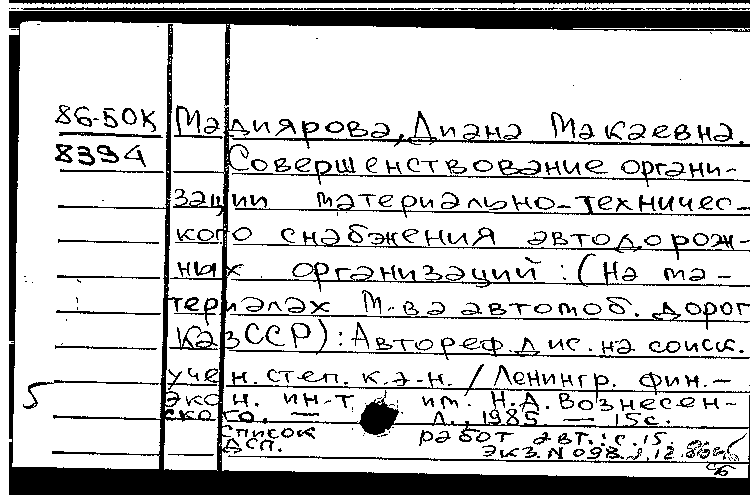 86-50К Мадиярова, Диана Макаевна.
8394 Совершенствование органи-
зации материально-техничес-
кого снабжения автодорож-
ных организаций: (На ма-
териалах М-ва автомоб. дорог
КазССР): Автореф. дис. на соиск.
учен. степ. к.э.н. / Ленингр. фин.-
5 экон. ин-т им. Н.А. Вознесен-
ского. — Л., 1985 — 15с.
Список работ авт.: с. 15.
ДСП. Экз. N 098.